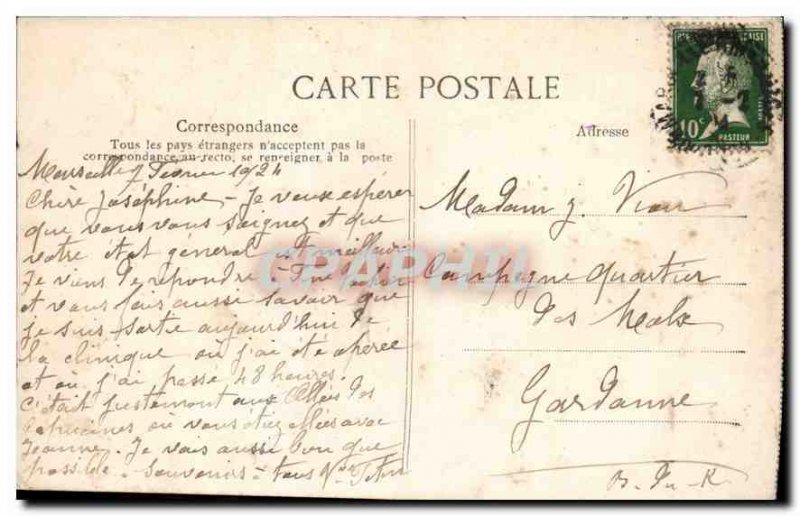 CARTE POSTALE
Correspondance
Tous les pays étrangers n'acceptent pas la
correspondance au recto, se renseigner à la poste
Adresse
10c
PASTEUR
Marseille 7 Février 1924
Chère Joséphine - Je veux espérer
que vous vous soignez et que
votre état général est meilleur.
Je viens de répondre à
et vous fais aussi savoir que
je suis sortie aujourd'hui de
la clinique où j'ai été opérée
et où j'ai passé 48 heures.
C'était justement aux Allées des
Capucines où vous étiez allées avec
Jeanne. Je vais aussi bien que
possible. Souvenirs à tous
Madame J.
Campagne quartier
des
Gardanne
B. du R.
CPAPHIL